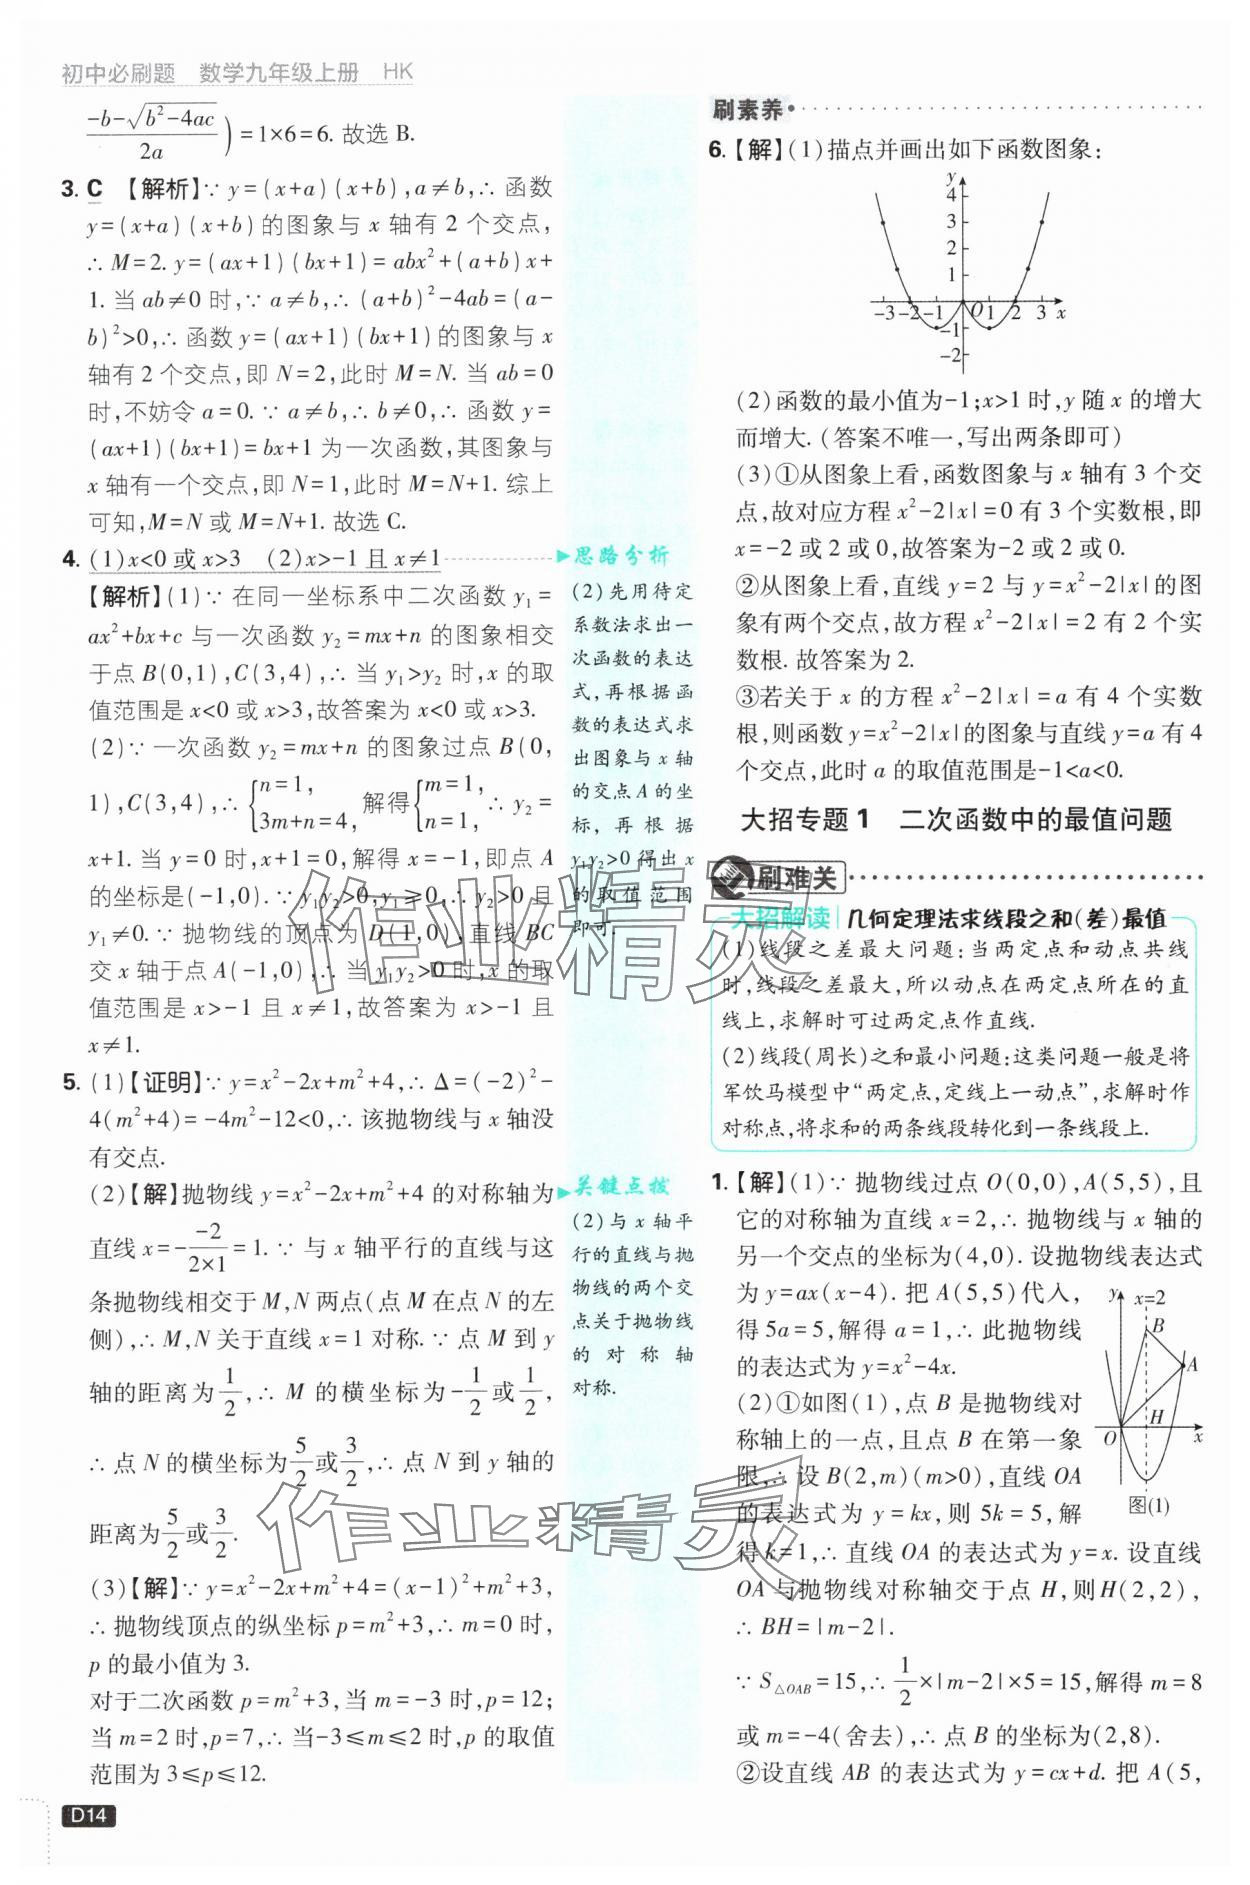 初中必刷题 数学九年级上册 HK
\frac{-b-\sqrt{b²-4ac}}{2a})=1×6=6. 故选 B.
3. C 【解析】∵ y=(x+a)(x+b),a≠b,∴ 函数
y=(x+a)(x+b)的图象与 x 轴有 2 个交点,
∴ M=2. y=(ax+1)(bx+1)=abx²+(a+b)x+
1. 当 ab≠0 时,∵ a≠b,∴ (a+b)²-4ab=(a-
b)²>0,∴ 函数 y=(ax+1)(bx+1)的图象与 x
轴有 2 个交点,即 N=2,此时 M=N. 当 ab=0
时,不妨令 a=0. ∵ a≠b,∴ b≠0,∴ 函数 y=
(ax+1)(bx+1)=bx+1 为一次函数,其图象与
x 轴有一个交点,即 N=1,此时 M=N+1. 综上
可知,M=N 或 M=N+1. 故选 C.
4. (1)x<0 或 x>3 (2)x>-1 且 x≠1
【解析】(1)∵ 在同一坐标系中二次函数 y₁=
ax²+bx+c 与一次函数 y₂=mx+n 的图象相交
于点 B(0,1),C(3,4),∴ 当 y₁>y₂ 时,x 的取
值范围是 x<0 或 x>3,故答案为 x<0 或 x>3.
(2)∵ 一次函数 y₂=mx+n 的图象过点 B(0,
1),C(3,4),∴ {n=1, 3m+n=4, 解得{m=1, n=1, ∴ y₂=
x+1. 当 y=0 时,x+1=0,解得 x=-1,即点 A
的坐标是(-1,0). ∵ y₁y₂>0,y₁≥0,∴ y₂>0 且
y₁≠0. ∵ 抛物线的顶点为 D(1,0),直线 BC
交 x 轴于点 A(-1,0),∴ 当 y₁y₂>0 时,x 的取
值范围是 x>-1 且 x≠1,故答案为 x>-1 且
x≠1.
5. (1)【证明】∵ y=x²-2x+m²+4,∴ Δ=(-2)²-
4(m²+4)=-4m²-12<0,∴ 该抛物线与 x 轴没
有交点.
(2)【解】抛物线 y=x²-2x+m²+4 的对称轴为
直线 x=-\frac{-2}{2×1}=1. ∵ 与 x 轴平行的直线与这
条抛物线相交于 M,N 两点(点 M 在点 N 的左
侧),∴ M,N 关于直线 x=1 对称. ∵ 点 M 到 y
轴的距离为\frac{1}{2},∴ M 的横坐标为-\frac{1}{2}或\frac{1}{2},
∴ 点 N 的横坐标为\frac{5}{2}或\frac{3}{2},∴ 点 N 到 y 轴的
距离为\frac{5}{2}或\frac{3}{2}.
(3)【解】∵ y=x²-2x+m²+4=(x-1)²+m²+3,
∴ 抛物线顶点的纵坐标 p=m²+3,∴ m=0 时,
p 的最小值为 3.
对于二次函数 p=m²+3,当 m=-3 时,p=12;
当 m=2 时,p=7,∴ 当-3≤m≤2 时,p 的取值
范围为 3≤p≤12.
D14
思路分析
(2)先用待定
系数法求出一
次函数的表达
式,再根据函
数的表达式求
出图象与 x 轴
的交点 A 的坐
标,再根据
y₁y₂>0 得出 x
的取值范围
即可.
关键点拨
(2)与 x 轴平
行的直线与抛
物线的两个交
点关于抛物线
的对称轴
对称.
刷素养
6. 【解】(1)描点并画出如下函数图象:
y
4
3
2
1
-3 -2 -1 O 1 2 3 x
-1
-2
(2)函数的最小值为-1;x>1 时,y 随 x 的增大
而增大. (答案不唯一,写出两条即可)
(3)①从图象上看,函数图象与 x 轴有 3 个交
点,故对应方程 x²-2|x|=0 有 3 个实数根,即
x=-2 或 2 或 0,故答案为-2 或 2 或 0.
②从图象上看,直线 y=2 与 y=x²-2|x|的图
象有两个交点,故方程 x²-2|x|=2 有 2 个实
数根. 故答案为 2.
③若关于 x 的方程 x²-2|x|=a 有 4 个实数
根,则函数 y=x²-2|x|的图象与直线 y=a 有 4
个交点,此时 a 的取值范围是-1<a<0.
大招专题 1 二次函数中的最值问题
刷难关
大招解读 几何定理法求线段之和(差)最值
(1)线段之差最大问题:当两定点和动点共线
时,线段之差最大,所以动点在两定点所在的直
线上,求解时可过两定点作直线.
(2)线段(周长)之和最小问题:这类问题一般是将
军饮马模型中“两定点,定线上一动点”,求解时作
对称点,将求和的两条线段转化到一条线段上.
1. 【解】(1)∵ 抛物线过点 O(0,0),A(5,5),且
它的对称轴为直线 x=2,∴ 抛物线与 x 轴的
另一个交点的坐标为(4,0). 设抛物线表达式
为 y=ax(x-4). 把 A(5,5)代入,
得 5a=5,解得 a=1,∴ 此抛物线
的表达式为 y=x²-4x.
(2)①如图(1),点 B 是抛物线对
称轴上的一点,且点 B 在第一象
限,∴ 设 B(2,m)(m>0),直线 OA
的表达式为 y=kx,则 5k=5,解
得 k=1,∴ 直线 OA 的表达式为 y=x. 设直线
OA 与抛物线对称轴交于点 H,则 H(2,2),
∴ BH=|m-2|.
∵ S△OAB=15,∴ \frac{1}{2}×|m-2|×5=15,解得 m=8
或 m=-4(舍去),∴ 点 B 的坐标为(2,8).
②设直线 AB 的表达式为 y=cx+d. 把 A(5,
y x=2
B
A
H
O x
图(1)
作业精灵
作业精灵